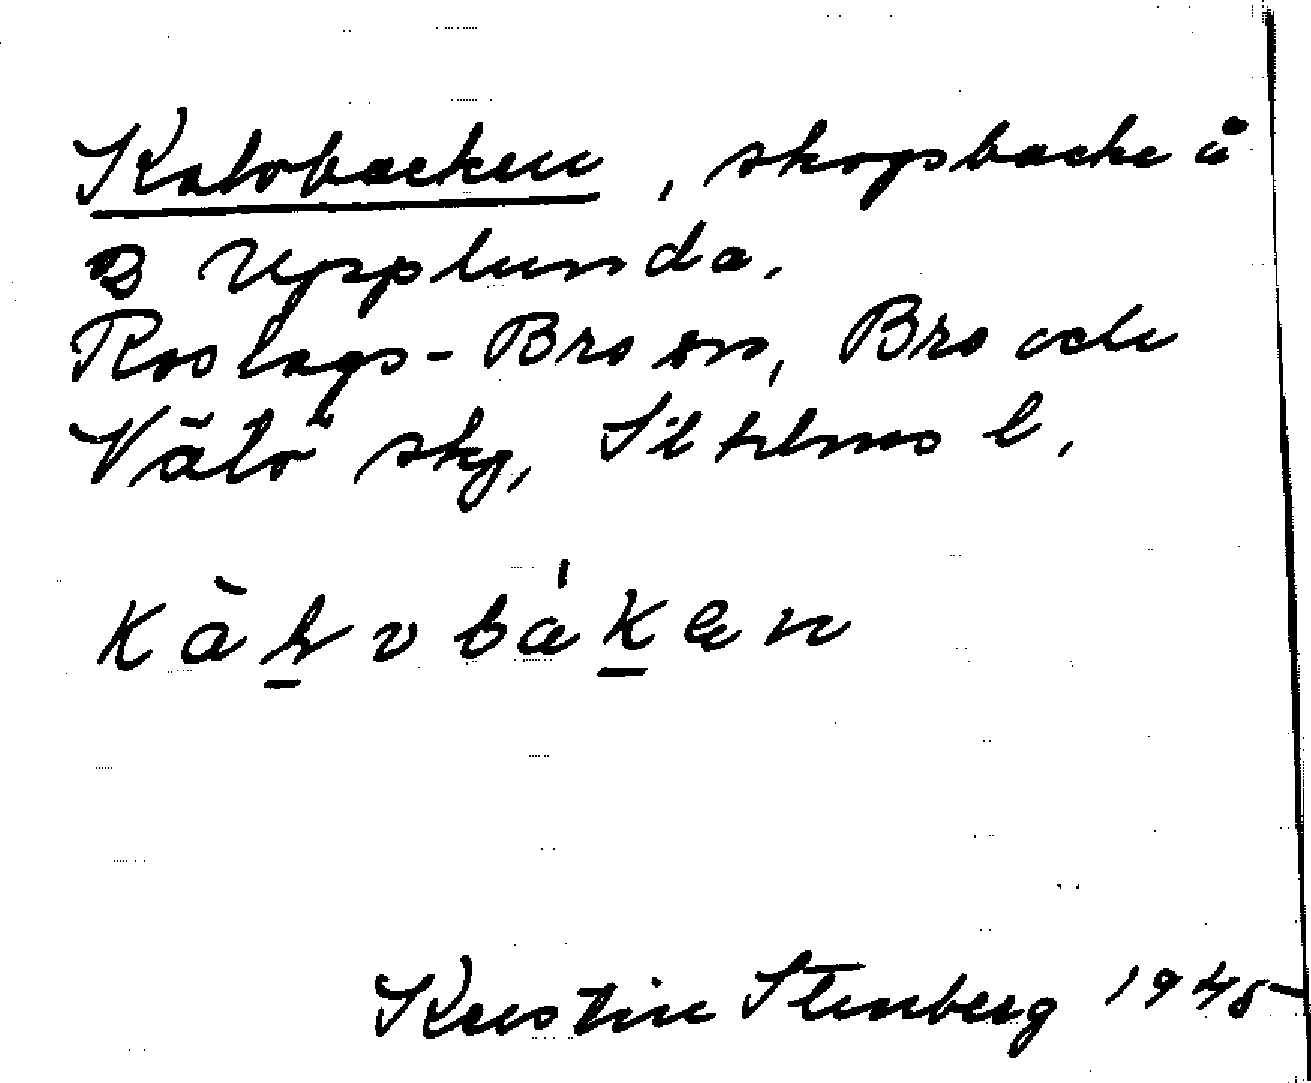 Kalvbacken, skogsbacke å
Upplunda,
Roslags-Bro sn, Bro och
Vätö skg, Sthlms l.
Kerstin Stenberg 1945